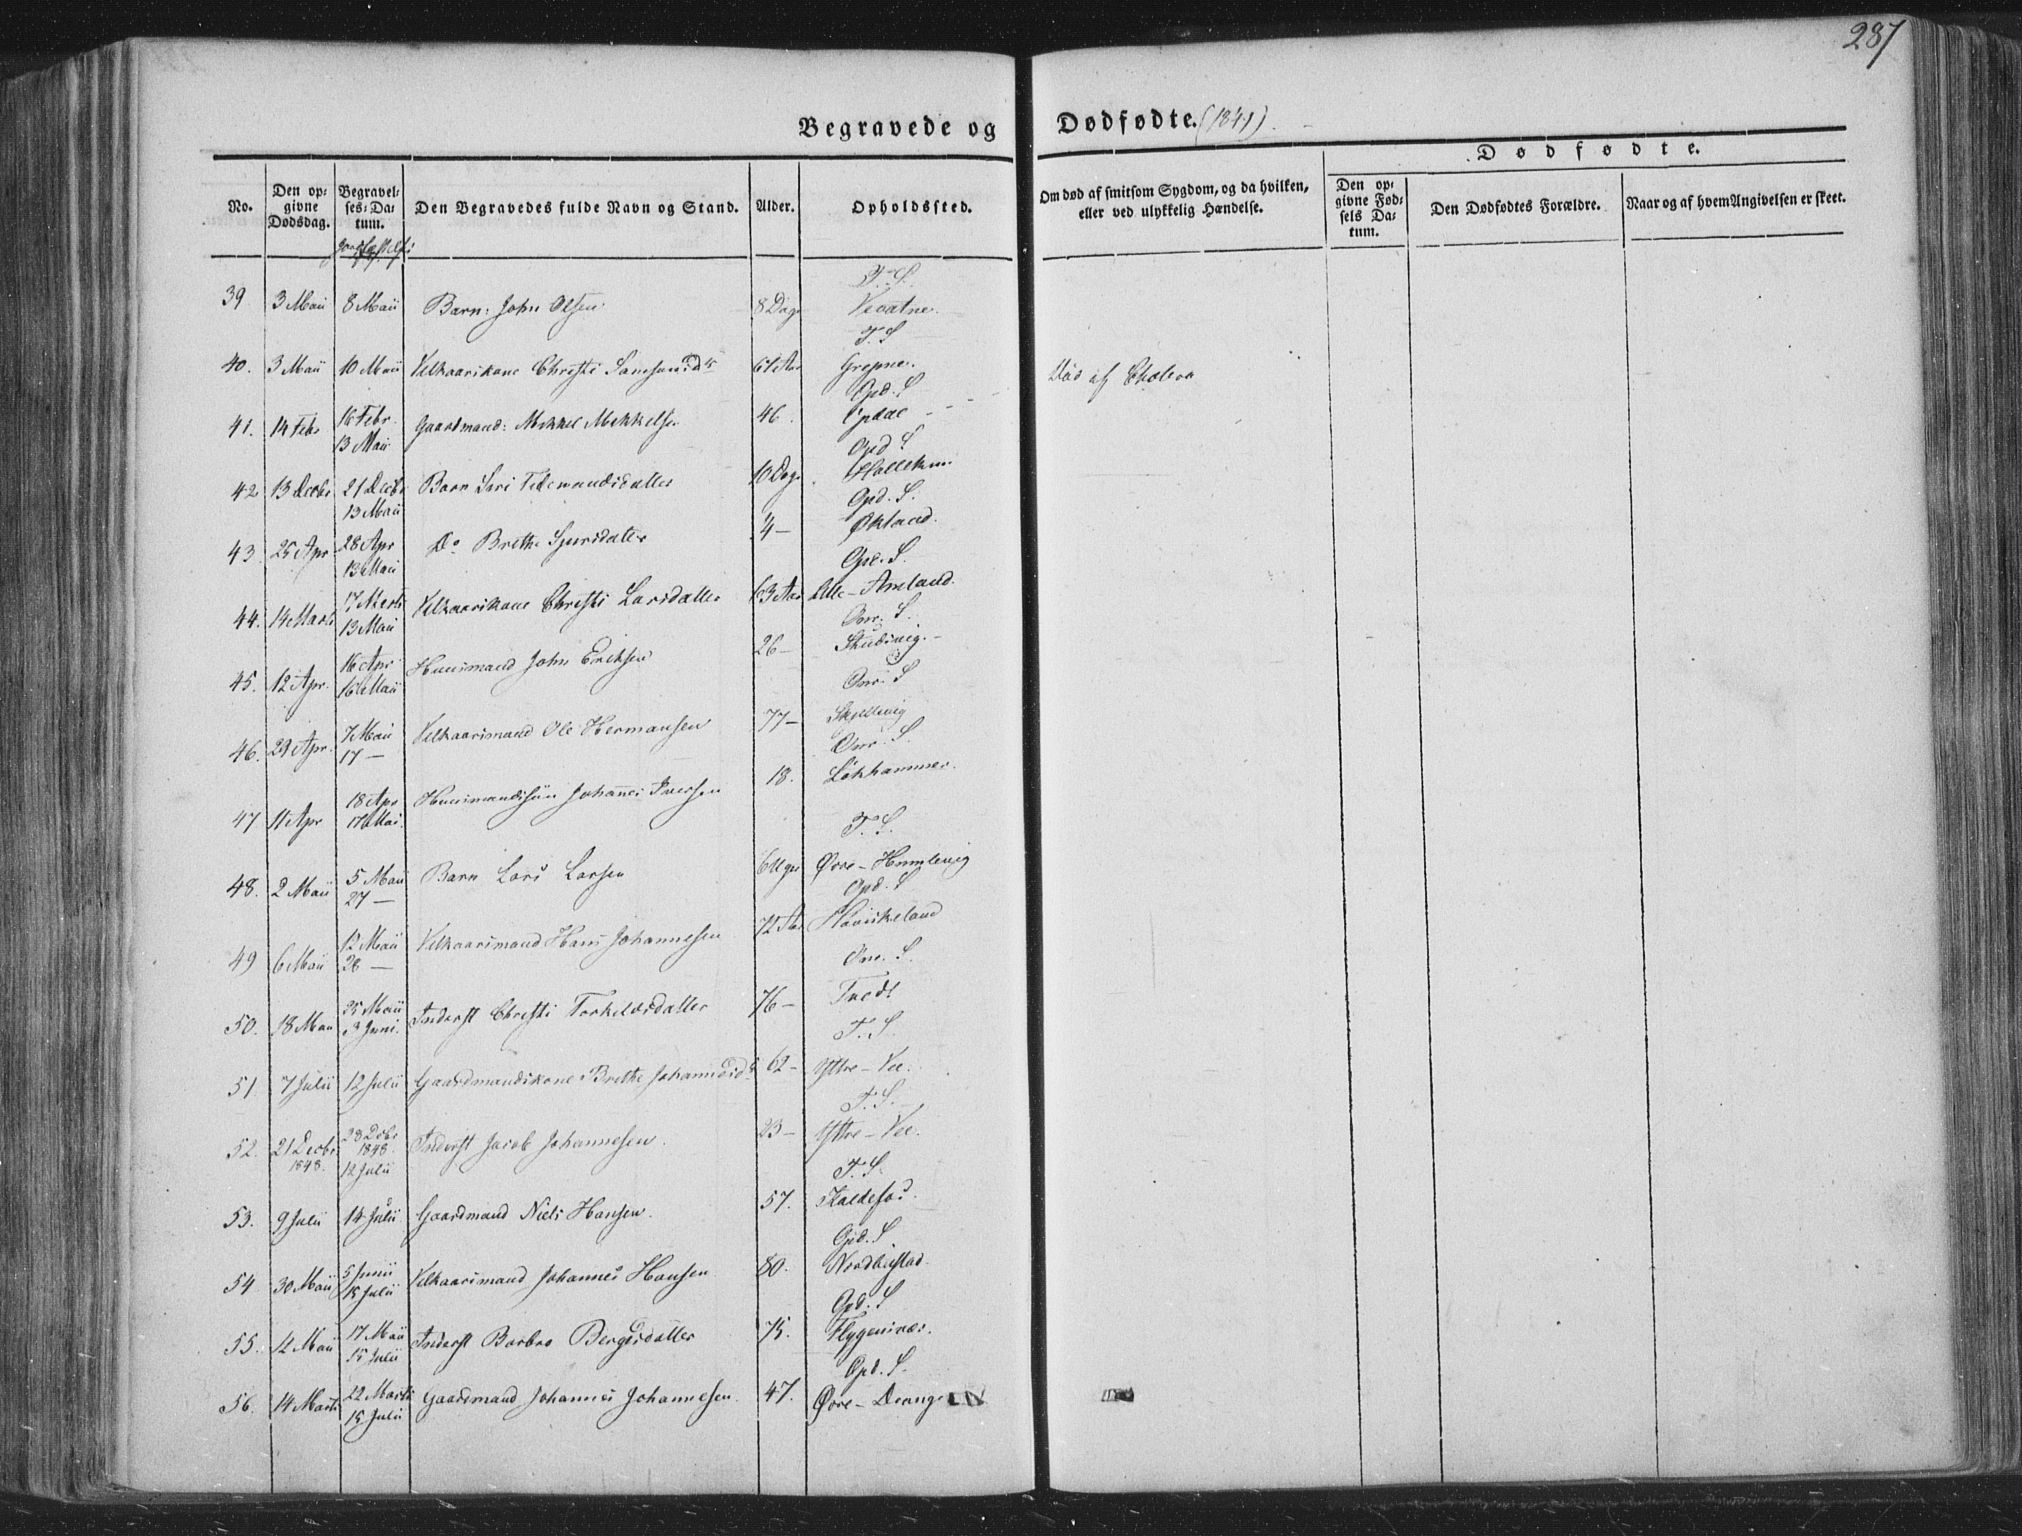 287
Begravede og Dødfødte. (1849)
No.
Den opgivne Dødsdag.
Begravelses-Datum.
Den Begravedes fulde Navn og Stand.
Alder.
Opholdssted.
Om død af smitsom Sygdom, og da hvilken, eller ved ulykkelig Hændelse.
Dødfødte.
Den opgivne Fødsels Datum.
Den Dødfødtes Forældre.
Naar og af hvem Angivelsen er skeet.
T. S.
39 3 Maii 8 Maii Barn: John Olsen 8 Dage Vevatne.
T. S
40. 3 Maii 10 Maii Velkaarskone Christi Samsonsd. 61 Aar Grepne. Død af Cholera
Opd. S
41. 14 Febr 16 Febr. 13 Maii Gaardmand: Mikkel Mikkelsen 46. Opdal
Opd S
42 13 Decbr 21 Decbr 13 Maii Barn Siri Tidemandsdatter 10 Dage
Opd. S.
43 25 Apr 28 Apr 13 Maii Do Brethe Sjursdatter 1/4 — Økland.
Opd. S
44. 14 Marts 17 Marts 13 Maii Velkaarskone Christi Larsdatter 63 Aar Lille-Amland.
Onr. S.
45. 12 Apr. 16 Apr 16 Maii Huusmand John Eriksen 26 — Skudsvig.
Onr. S
46. 29 Apr. 7 Maii 17 — Velkaarsmand Ole Hermansen 77 — Skjellevig
Onr. S.
47 11 Apr 18 Apr 17 Mai Huusmandssøn Johannes Iversen 18. Løkhammer.
T. S.
48. 2 Maii 5 Maii 27 — Barn Lars Larsen 6 Uger Øvre-Humlevig
Opd. S
49 6 Maii 12 Maii 28 — Velkaarsmand Hans Johannesen 72 Aar Haviskeland
Onr. S.
50. 18 Maii 25 Maii 3 Juni. Inderst Christi Torkelsdatter 76 — Tvedt
T. S.
51 7 Julii 12 Julii Gaardmandskone Brethe Johannesd. 62 — Yttre-Vee.
T. S.
52. 21 Decbr 1848. 28 Dcbr 1848. 12 Julii Inderst Jacob Johannesen. 23 — Yttre-Vee.
T. S.
53. 9 Julii 14 Julii Gaardmand Niels Hansen. 57. Kaldefos.
Opd. S
54 30 Maii 5 Junii 15 Julii Velkaarsmand Johannes Hansen 80. Nordhustad.
Opd. S
55. 12 Maii 17 Maii 15 Julii Inderst Barbro Bergesdatter 75. Flygensvær.
Opd. S.
56. 14 Marts 22 Marts 15 Julii Gaardmand Johannes Johannesen. 47. Øvre-Drange